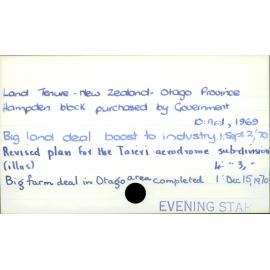 Land Tenure - New Zealand - Otago Province
Hampden block purchased by Government
10: Apl, 1969
Big land deal boost to industry. 1: Sept. 3, '70
Revised plan for the Taieri aerodrome subdivision
(illus) 4: " 3, "
Big farm deal in Otago area completed 1: Dec 15, 1970
EVENING STAR